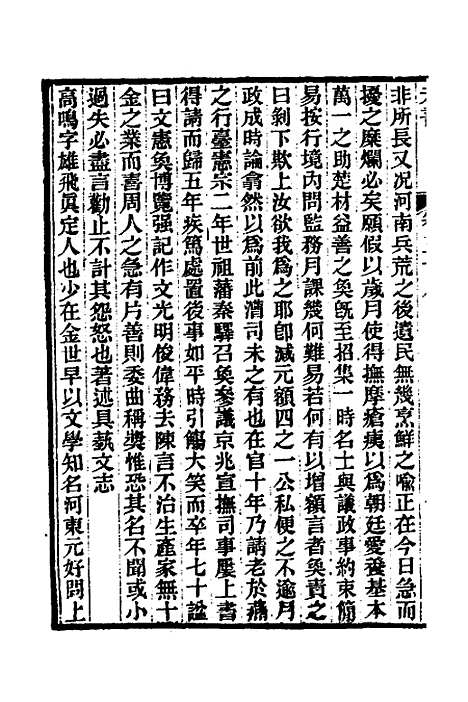 非所長又况河南兵荒之後遺民無幾烹鮮之喩正在今日急而
擾之糜爛必矣願假以歲月使得撫摩瘡痍以爲朝廷愛養基本
萬一之助楚材益善之奐旣至招集一時名士與議政事約束簡
易按行境內問監務月課幾何難易若何有以增額言者奐責之
曰剝下欺上汝欲我爲之耶卽減元額四之一公私便之不逾月
政成時論翕然以爲前此漕司未之有也在官十年乃請老於燕
之行臺憲宗二年世祖藩秦驛召奐參議京兆宣撫司事屢上書
得請而歸五年疾篤處置後事如平時引觴大笑而卒年七十諡
曰文憲奐博覽强記作文光明俊偉務去陳言不治生產家無十
金之業而喜周人之急有片善則委曲稱奬惟恐其名不聞或小
過失必盡言勸止不計其怨怒也著述具蓺文志
高鳴字雄飛眞定人也少在金世早以文學知名河東元好問上